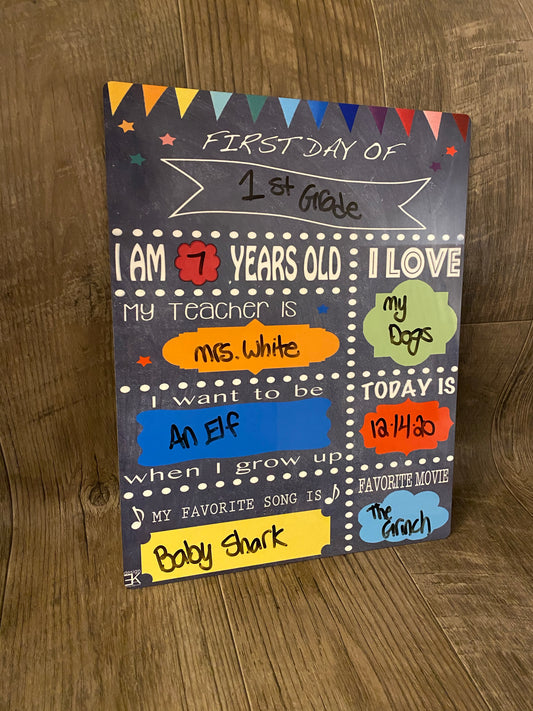 FIRST DAY OF
1st Grade
I AM 7 YEARS OLD
I LOVE
my
Dogs
MY TEACHER IS
mrs. White
I want to be
An Elf
when I grow up
TODAY IS
12-14-20
MY FAVORITE SONG IS
Baby Shark
FAVORITE MOVIE
The
Grinch